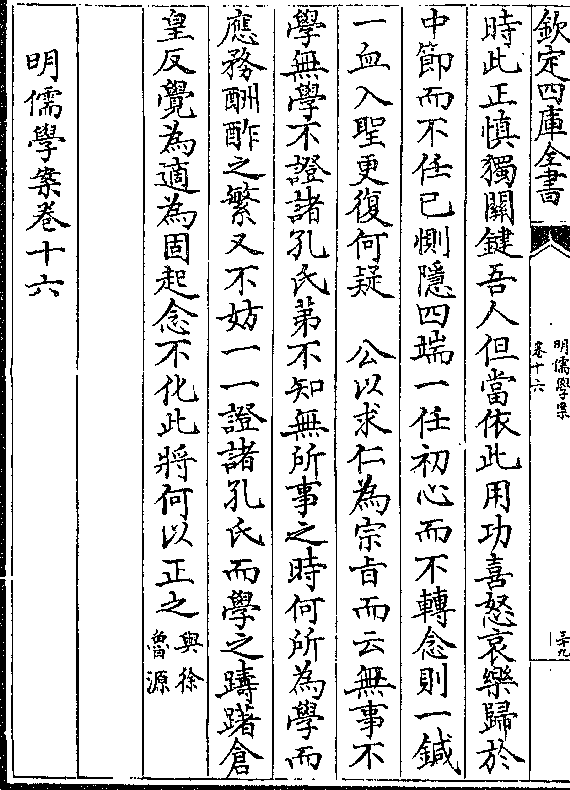 欽定四庫全書
明儒學案
卷十六
二十九
時此正慎獨關鍵吾人但當依此用功喜怒哀樂歸於
中節而不任已惻隱四端一任初心而不轉念則一鍼
一血入聖更復何疑　公以求仁為宗旨而云無事不
學無學不證諸孔氏第不知無所事之時何所為學而
應務酬酢之繁又不妨一一證諸孔氏而學之躊躇倉
皇反覺為適為固起念不化此將何以正之與徐
魯源
明儒學案卷十六